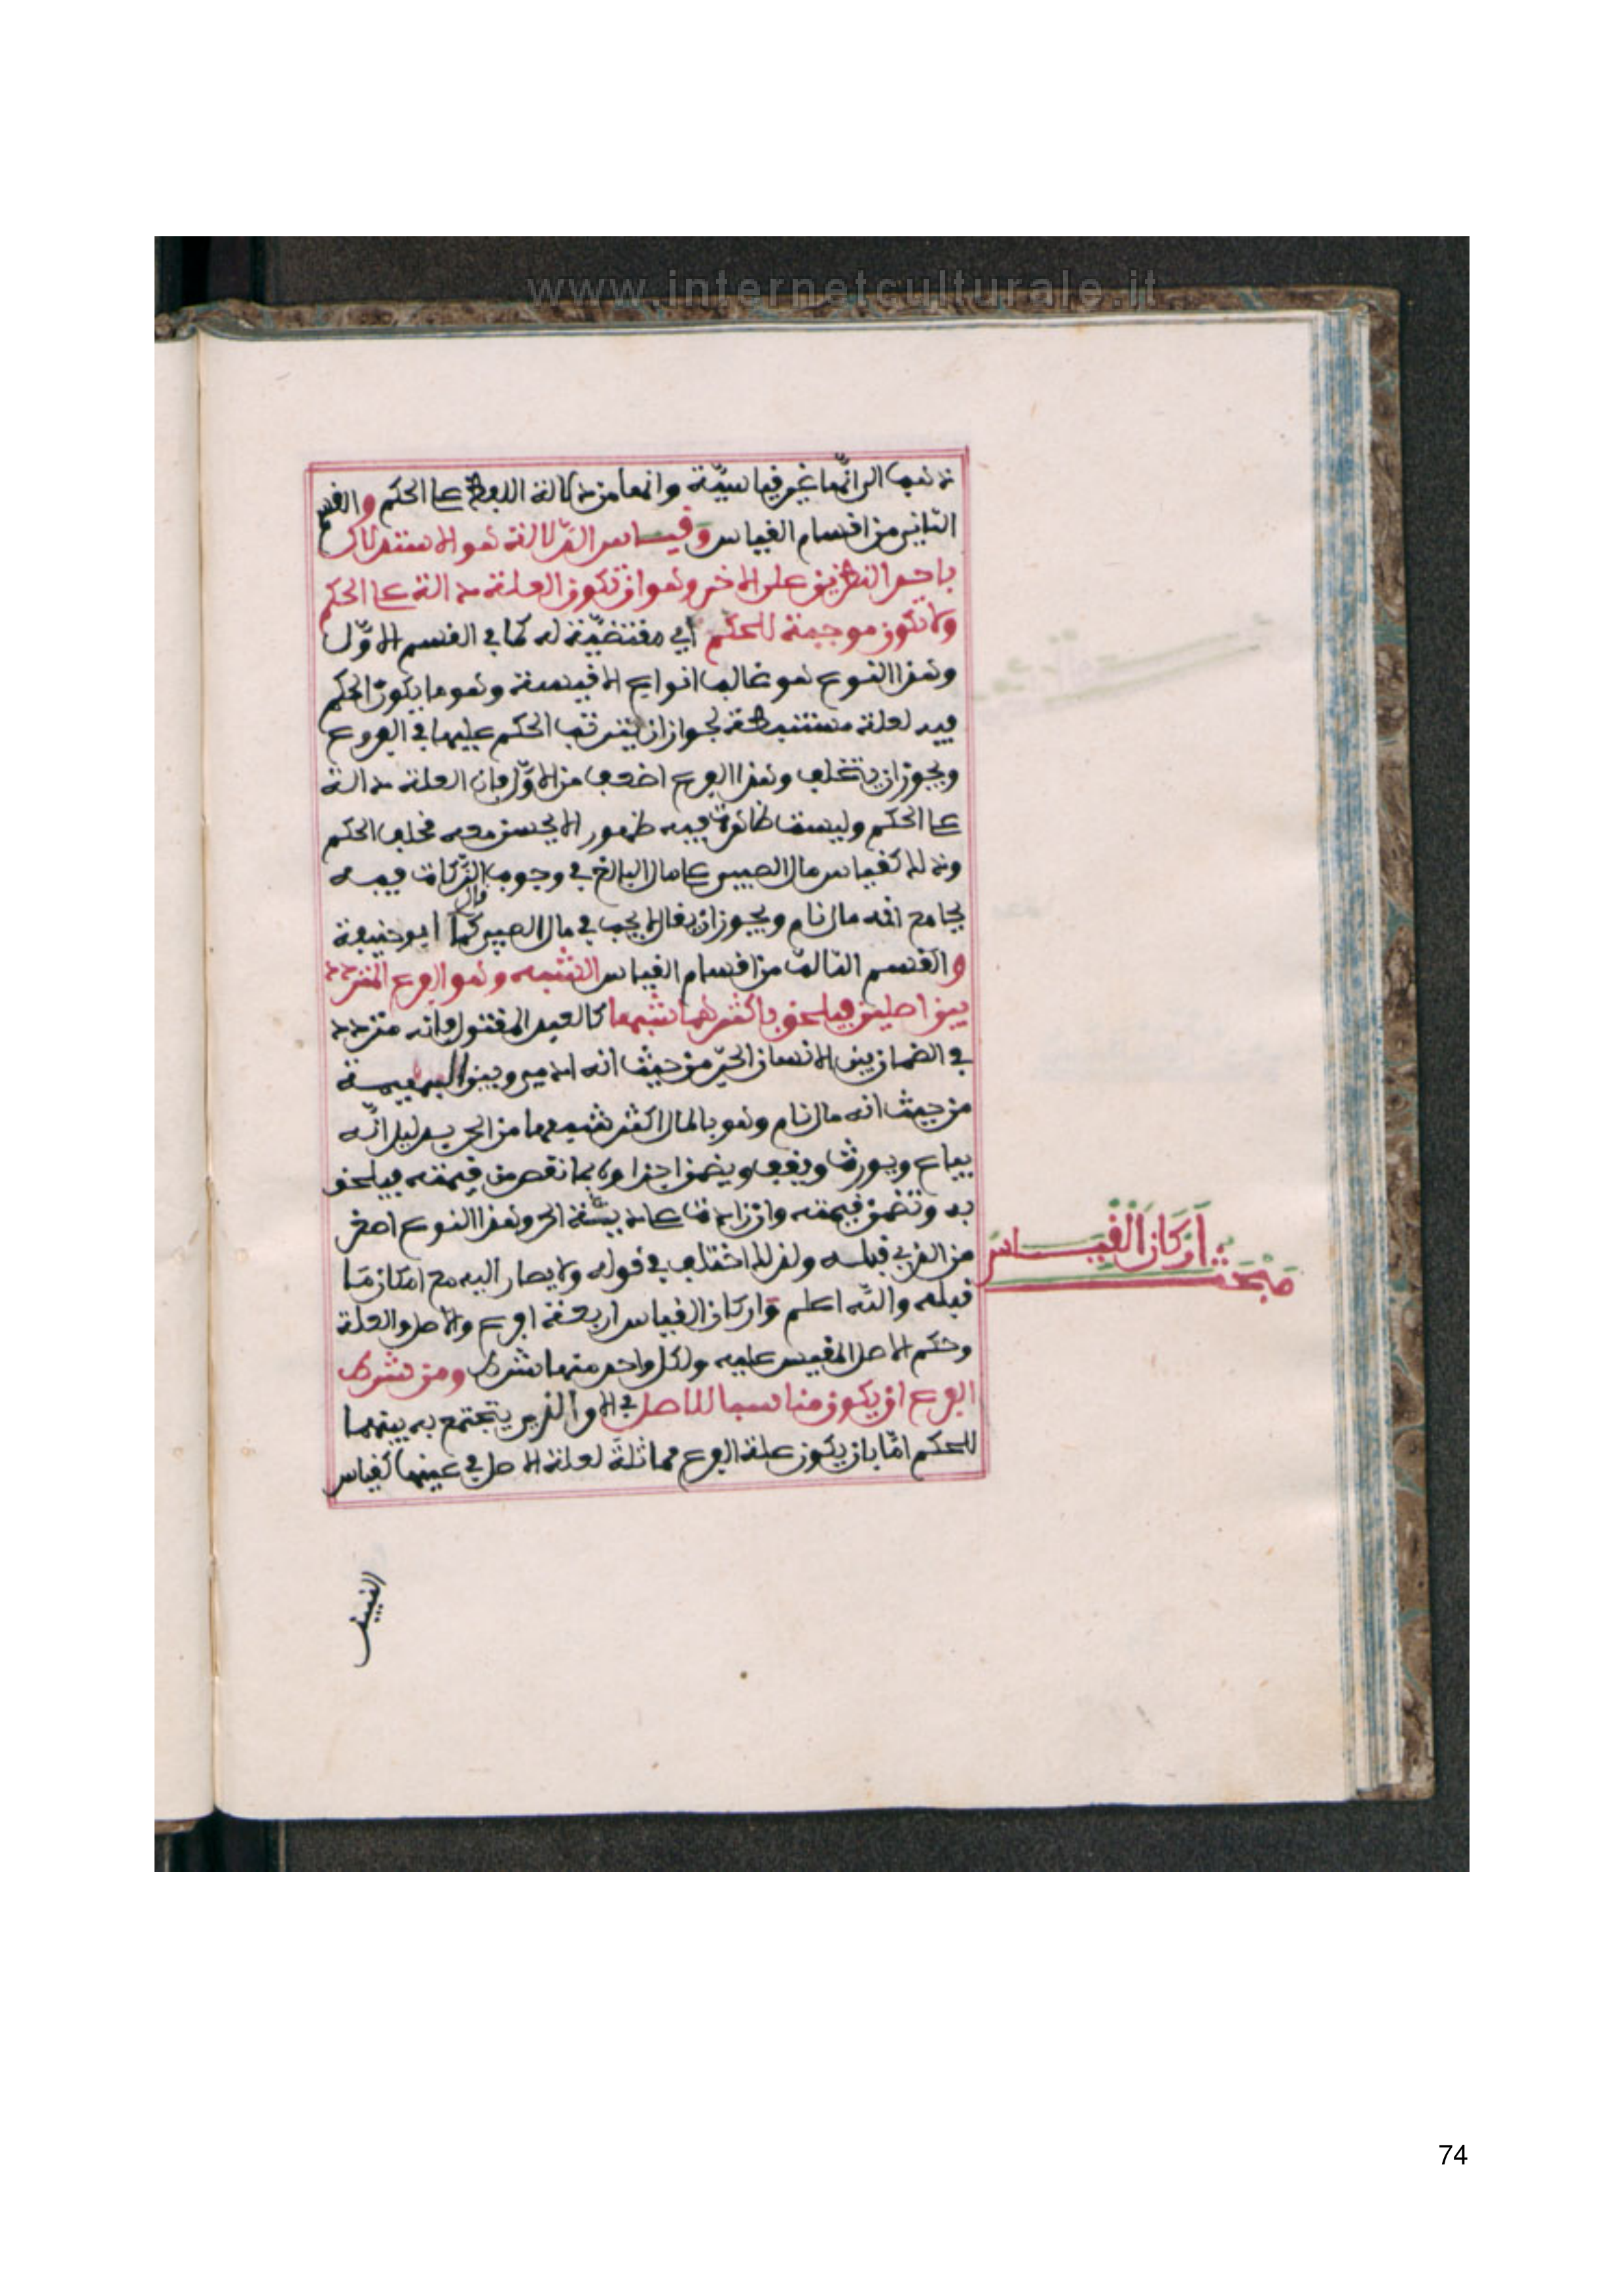 www.internetculturale.it
ذهب الى انّها غير قياسيّة وانها من دلالة اللفظ على الحكم والقسم
الثاني من اقسام القياس وقياس الدّلالة هو الاستدلال
باحد النظيرين على الاخر وهو ان تكون العلة دالة على الحكم
ولا تكون موجبة للحكم أي مقتضيّة له كما في القسم الاوّل
وهذا النوع هو غالب انواع الاقيسة وهو ما يكون الحكم
فيه لعلة مستنبطة لجواز ان يترتب الحكم عليها في الفروع
ويجوز ان يتخلف وهذا الفرع اضعف من الاوّل فان العلة دالة
على الحكم وليست ظاهرة فيه ظهور الا يحسن معه تخلف الحكم
وذلك كقياس مال الصبي على مال البالغ في وجوب الزّكاة فيه
بجامع انه مال نام ويجوز ان يقال لا يجب في مال الصبي كما قال ابو حنيفة
والقسم الثالث من اقسام القياس الشبه وهو الفرع المتردد
بين اصلين فيلحق باكثرهما شبها كالعبد المقتول فانه متردد
في الضمان بين الانسان الحرّ من حيث انه ادمي وبين البهيمة
من حيث انه مال نام وهو بالمال اكثر شبها من الحر بدليل انّه
يباع ويورث ويوقف ويضمن اجزاوه بما نقص من قيمته فيلحق
به وتضمن قيمته وان زادت على دية الحر وهذا النوع اضعف
من الذي قبله ولذلك اختلف في قوله ولا يصار اليه مع امكان مـا
قبله والله اعلم واركان القياس اربعة فرع والاصل والعلة
وحكم الاصل المقيس عليه ولكل واحد منها شرط ومن شرط
الفرع ان يكون مناسبا للاصل في الاوالذي يجتمع به بينهما
للحكم امّا بان يكون علة الفرع مماثلة لعلة الاصل في عينها كقياس
مبحث اركان القياس
النبيذ
74